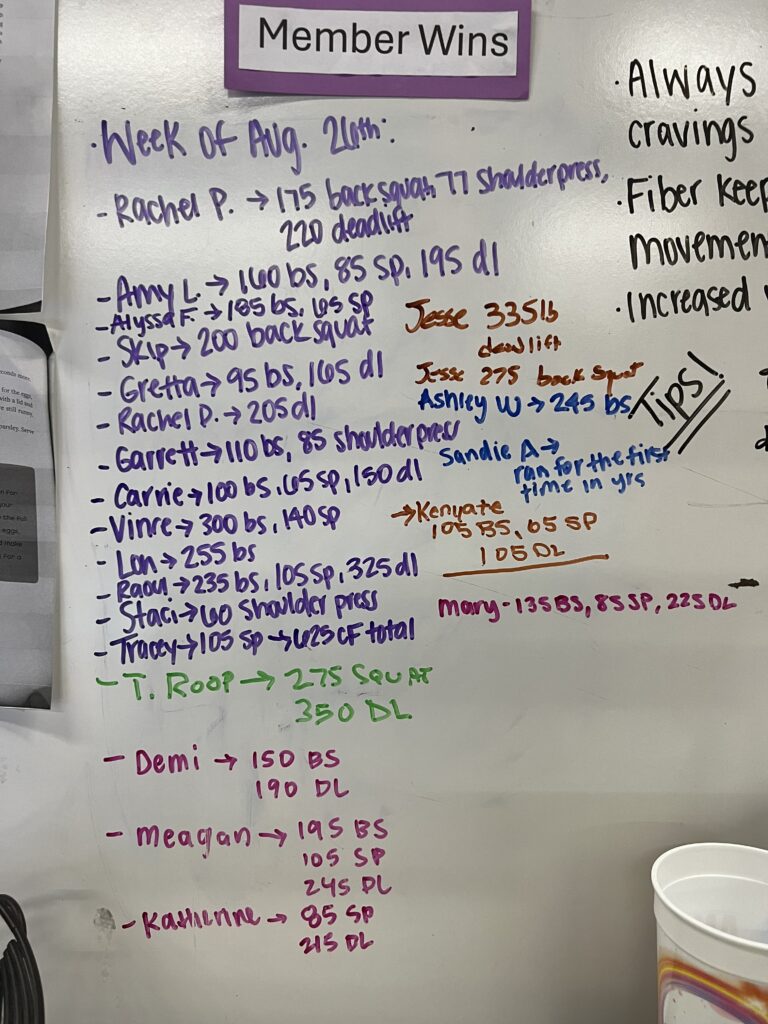 Member Wins
• Week of Aug. 26th:
- Rachel P. → 175 back squat, 77 shoulder press,
220 deadlift
- Amy L. → 160 bs, 85 sp, 195 dl
- Alyssa F. → 185 bs, 65 sp
- Skip → 200 back squat
- Gretta → 95 bs, 165 dl
- Rachel D. → 205 dl
- Garrett → 110 bs, 85 shoulder press
- Carrie → 100 bs, 65 sp, 150 dl
- Vince → 300 bs, 140 sp
- Lon → 255 bs
- Raoul → 235 bs, 105 sp, 325 dl
- Staci → 60 shoulder press
- Tracey → 105 sp → 625 CF total
- T. Roop → 275 Squat
350 DL
- Demi → 150 BS
190 DL
- Meagan → 195 BS
105 SP
245 DL
- Katherine → 85 SP
215 DL
Jesse 335lb
deadlift
Jesse 275 back squat
Ashley W → 245 bs
Sandie A →
ran for the first
time in yrs
→ Kenyate
105 BS, 65 SP
105 DL
Mary - 135 BS, 85 SP, 225 DL
• Always
cravings
• Fiber keep
movemen
• Increased
Tips!